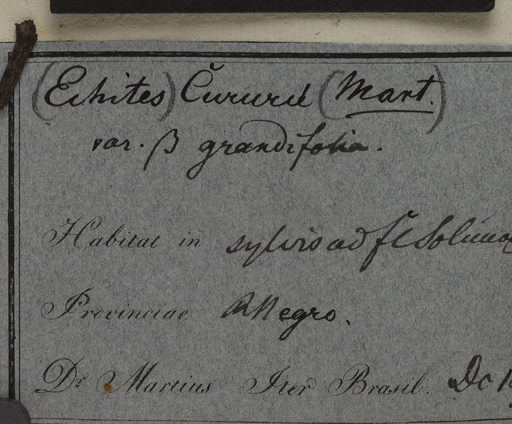 (Echites) Čururú (Mart.)
var. β grandifolia.
Habitat in sylvis ad fl Solimoe
Provinciae RNegro.
Dr Martius Iter Brasil. Dc